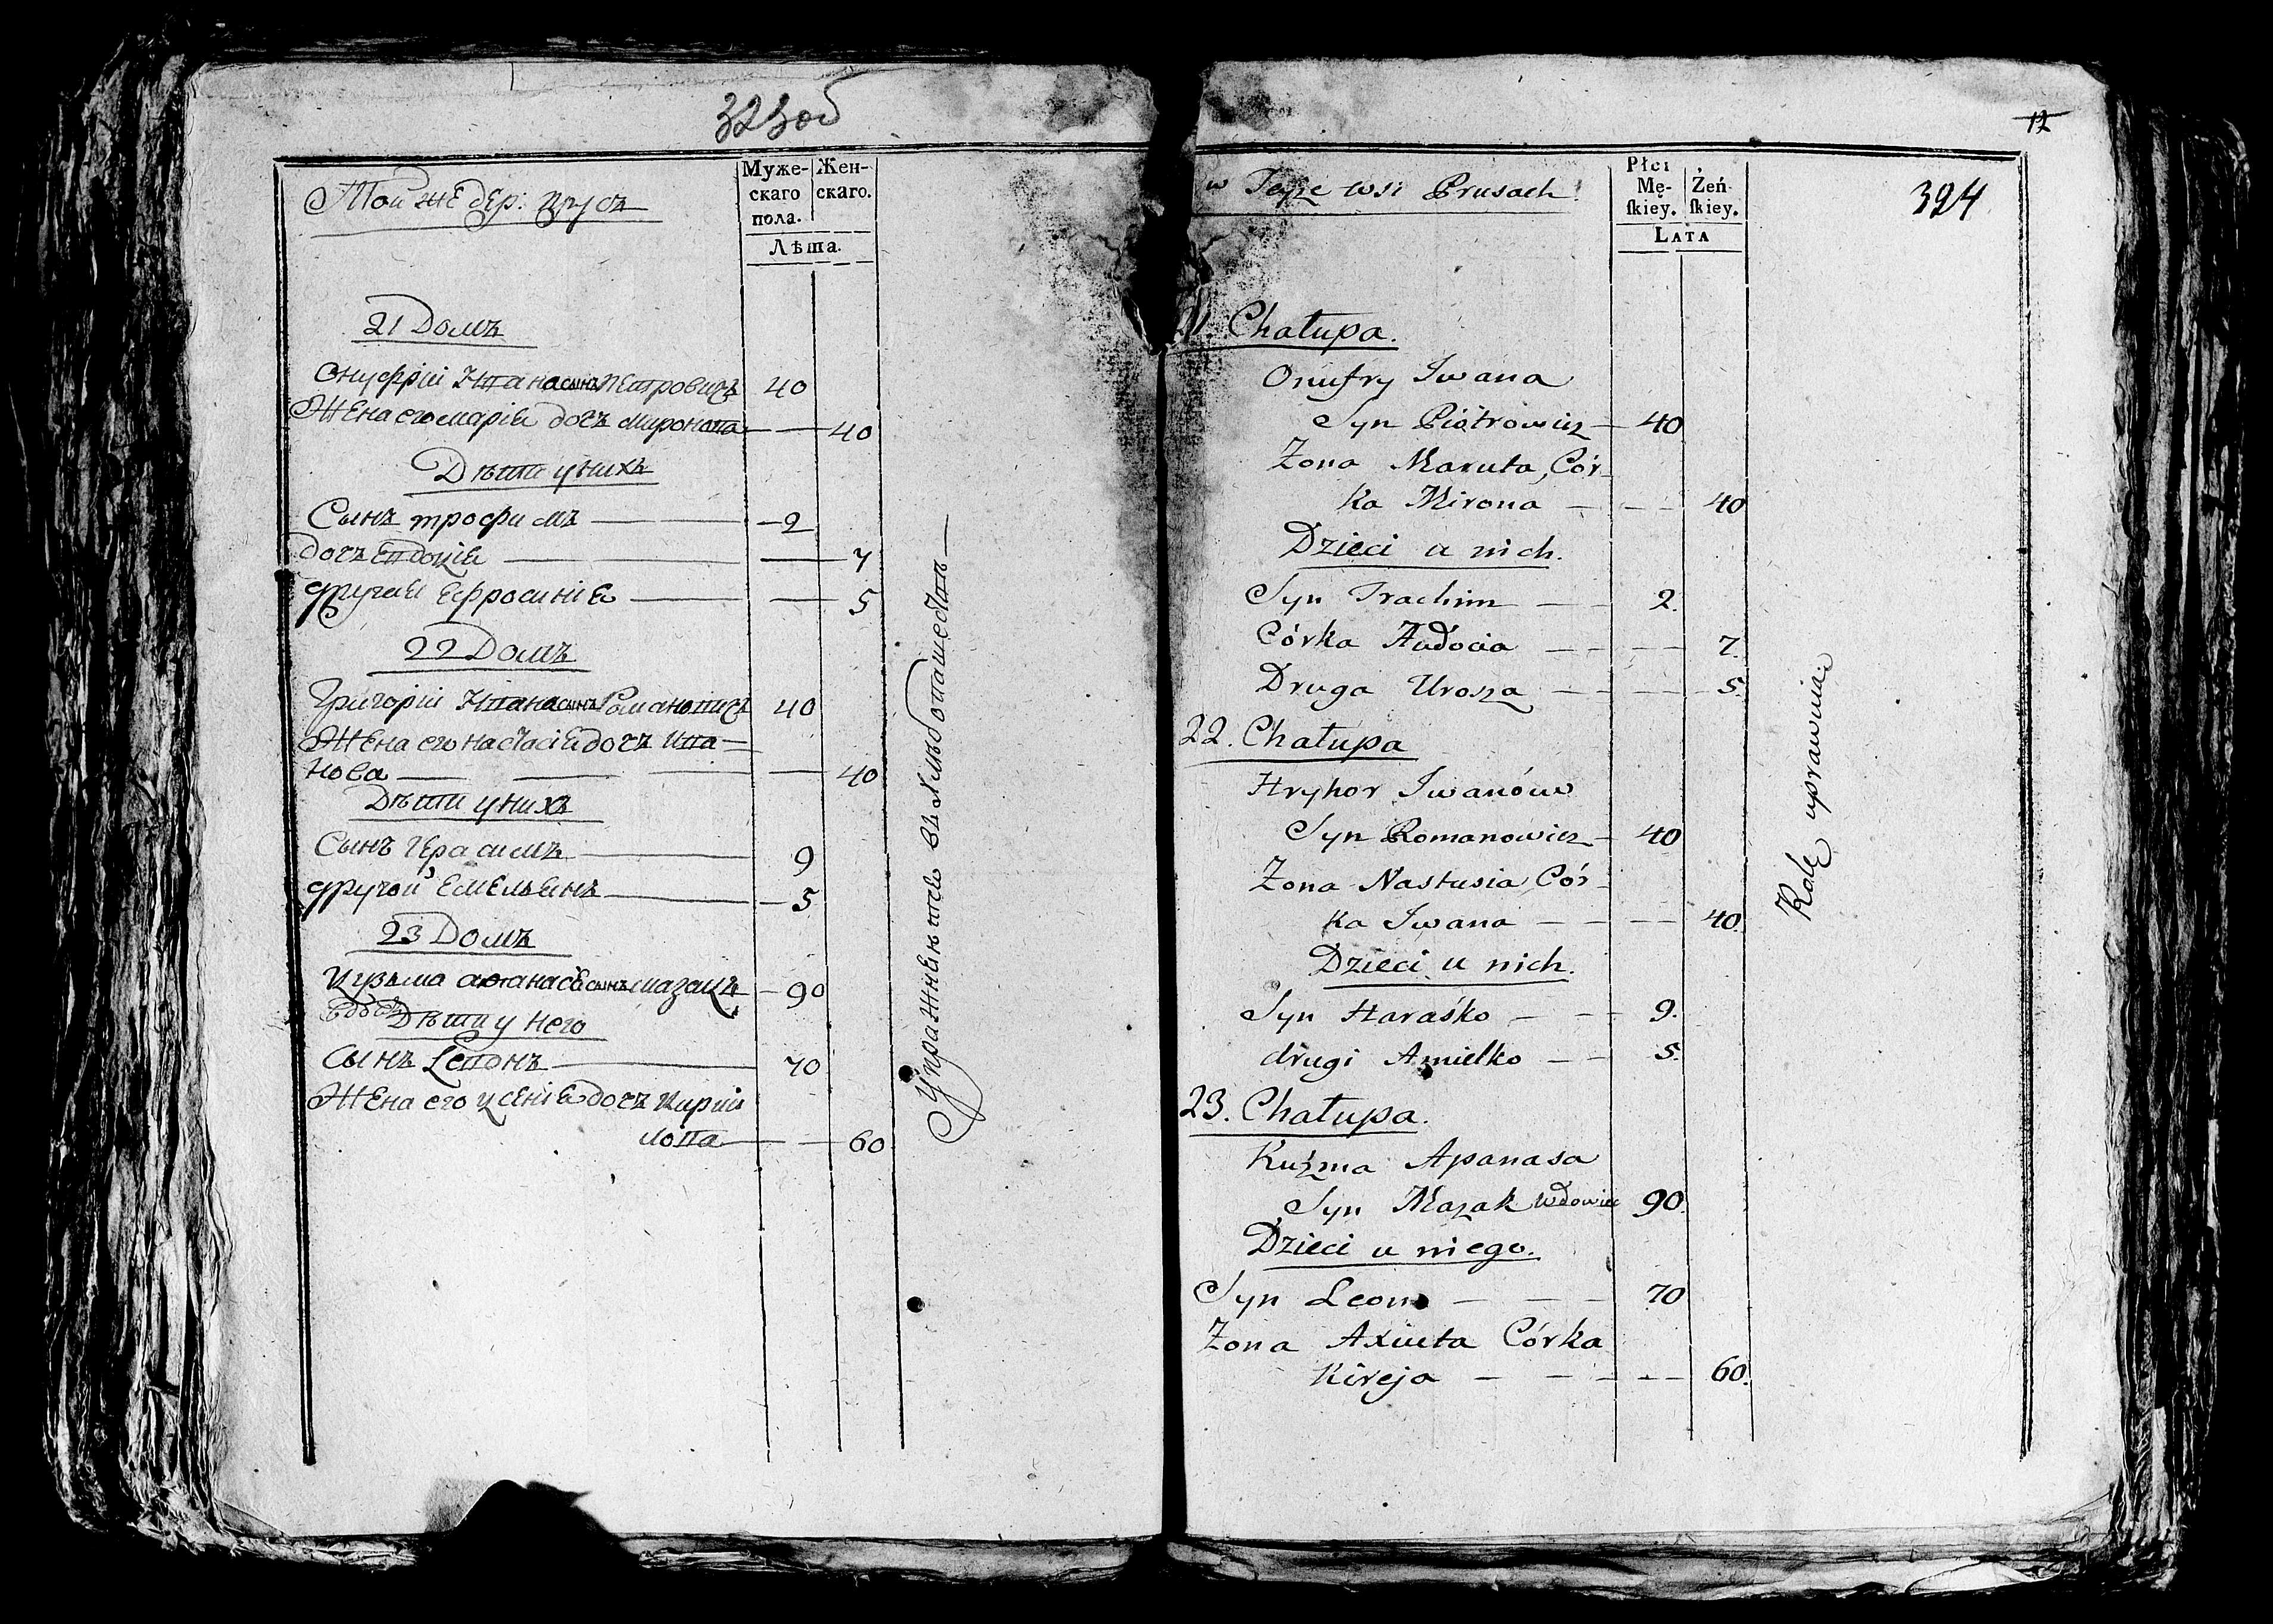 323об
Той же дер: Прусъ
Муже-
скаго
пола.
Жен-
скаго.
Лѣта.
21 Домъ
Онуфрій Ивана сынъ Петровичъ 40
Жена его марія дочъ миронова 40
Дѣти у нихъ
Сынъ трофимъ 2
дочъ Евдокія 7
другая Ефросинія 5
22 Домъ
Григорій Ивана сынъ Романовичъ 40
Жена его настасія дочъ Ива-
нова 40
Дѣти у нихъ
Сынъ Герасимъ 9
другой Емельянъ 5
23 Домъ
Кузьма афанасе сынъ мазакъ 90
Дѣти у него
Сынъ Левонъ 70
Жена его Ксенія дочъ Кирий
лова 60
Упражняются въ хлѣбопашествѣ
12
394
w Teyże wsi Prusach.
Płci
Mę-
ſkiey.
Żeń-
ſkiey.
LATA
21. Chałupa.
Onufry Iwana
Syn Piotrowicz 40
Żona Maruta, Cór-
ka Mirona 40
Dzieci u nich.
Syn Trachim 2.
Córka Audocia 7.
Druga Urosza 5.
22. Chałupa
Hryhor Iwanów
Syn Romanowicz 40
Żona Nastusia Cór-
ka Iwana 40.
Dzieci u nich.
Syn Haraśko 9.
drugi Amielko 5.
23. Chałupa.
Kuźma Apanasa
Syn Mazak Wdowiec 90.
Dzieci u niego.
Syn Leon 70
Żona Axiuta Córka
Kireja 60.
Rolę uprawuie